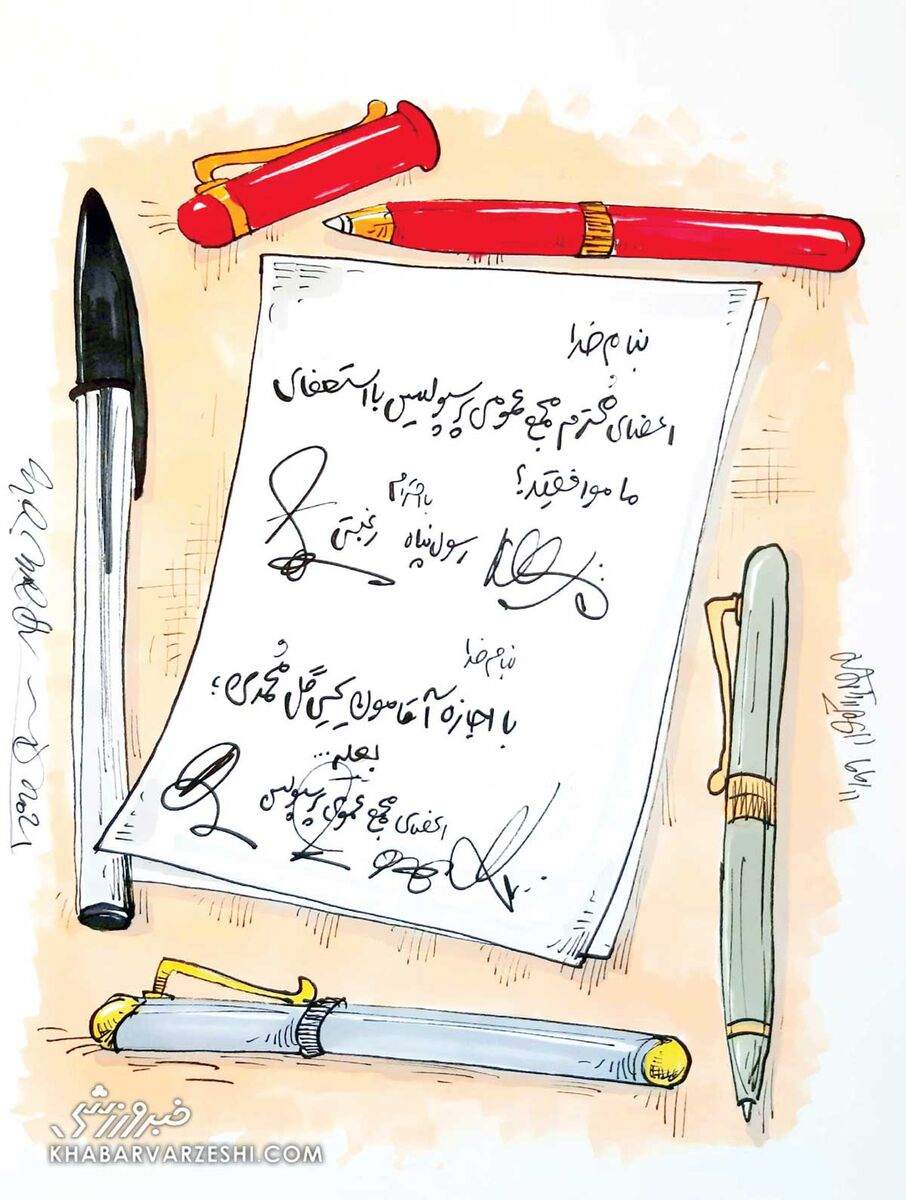 بنام خدا
اعضای مُحترم مجمع عمومی پرسپولیس با استعفای
ما موافقید؟
با احترام
رسول پناه رغبتی
بنام خدا
با اجازه آقامون یحیی گل مُحمدی؛
بعله...
اعضای مجمع عمومی پرسپولیس
2021
99/11
خبرورزشی
KHABARVARZESHI.COM